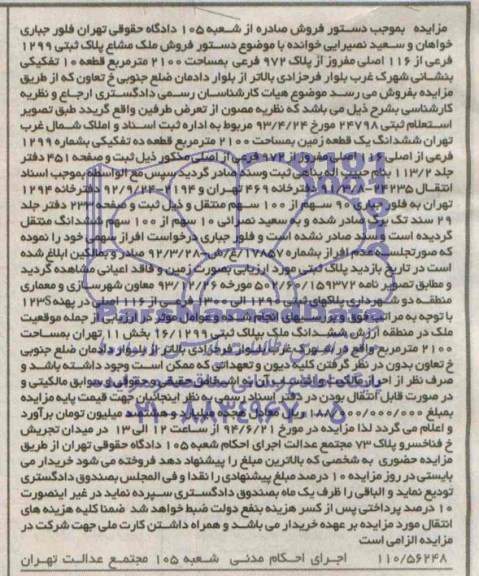 مزایده بموجب دستور فروش صادره از شعبه ۱۰۵ دادگاه حقوقی تهران فلور جباری
خواهان و سعید نصیرایی خوانده با موضوع دستور فروش ملک مشاع پلاک ثبتی ۱۲۹۹
فرعی از ۱۱۶ اصلی مفروز از پلاک ۹۷۲ فرعی بمساحت ۲۱۰۰ مترمربع قطعه ۱۰ تفکیکی
بنشانی شهرک غرب بلوار فرحزادی بالاتر از بلوار دادمان ضلع جنوبی خ تعاون که از طریق
مزایده بفروش می رسد موضوع هیات کارشناسان رسمی دادگستری ارجاع و نظریه
کارشناسی بشرح ذیل می باشد که نظریه مصون از تعرض طرفین واقع گردید طبق تصویر
استعلام ثبتی ۲۴۷۹۸ مورخ ۹۳/۴/۲۴ مربوط به اداره ثبت اسناد و املاک شمال غرب
تهران ششدانگ یک قطعه زمین بمساحت ۲۱۰۰ مترمربع قطعه ده تفکیکی بشماره ۱۲۹۹
فرعی از اصلی ۱۱۶ اصلی مفروز از ۹۷۲ فرعی از اصلی مذکور ذیل ثبت و صفحه ۴۵۱ دفتر
جلد ۱۱۳/۲ بنام حبیب اله پناهی ثبت وسند صادر گردید سپس مع الواسطه بموجب اسناد
انتقال دفترخانه ۴۶۹ تهران و ۱۱۹۴ دفترخانه ۱۲۹۴
تهران به فلور جباری ۹۰ سهم از ۱۰۰ سهم منتقل و ذیل ثبت و صفحه ۲۳۳ دفتر جلد
۲۹ سند تک برگ صادر شده و به سعید نصرائی ۱۰ سهم از ۱۰۰ سهم ششدانگ منتقل
گردیده است و سند صادر نشده است و فلور جباری درخواست افراز سهمی خود را نموده
که صورتجلسه عدم افراز بشماره ۱۷۸۵۷/غ/ش ۹۳/۳/۲۸ صادر و بمالکین ابلاغ شده
است در تاریخ بازدید پلاک ثبتی مورد ارزیابی بصورت زمین و فاقد اعیانی مشاهده گردید
و مطابق تصویر نامه ۵۰۰/۶۶/۱۵۹۳۷۲ مورخه ۹۳/۱۰/۲۶ معاون شهرسازی و معماری
منطقه دو شهرداری پلاکهای ثبتی ۱۲۹۰ الی ۱۳۰۰ فرعی از ۱۱۶ اصلی در پهنه S123
با توجه به مراتب فوق و بررسیهای انجام شده و عوامل موثر در ارزیابی از جمله موقعیت
ملک در منطقه ارزش ششدانگ ملک بپلاک ثبتی ۱۶/۱۲۹۹ بخش ۱۱ تهران بمساحت
۲۱۰۰ مترمربع واقع در شهرک غرب بلوار فرحزادی بالاتر از بلوار دادمان ضلع جنوبی
خ تعاون بدون در نظر گرفتن کلیه دیون و تعهداتی که ممکن است وجود داشته باشد و
صرف نظر از احراز مالکیت اشخاص حقیقی و حقوقی و سوابق مالکیتی و
در صورت قابل انتقال بودن در دفتر اسناد رسمی به نظر اینجانبان جهت قیمت پایه مزایده
بمبلغ معادل هجده میلیارد و هشتصد میلیون تومان برآورد
و اعلام می گردد لذا مزایده در مورخ ۹۴/۶/۲۱ از ساعت ۱۲ الی ۱۳ در میدان تجریش
خ فناخسرو پلاک ۷۳ مجتمع عدالت اجرای احکام شعبه ۱۰۵ دادگاه حقوقی تهران از طریق
مزایده حضوری به شخصی که بالاترین مبلغ را پیشنهاد دهد فروخته می شود خریدار می
بایستی در روز مزایده ۱۰ درصد مبلغ پیشنهادی را نقدا و فی المجلس بصندوق دادگستری
تودیع نماید و الباقی را ظرف یک ماه بصندوق دادگستری سپرده نماید در غیر اینصورت
۱۰ درصد پرداختی پس از کسر هزینه بنفع دولت ضبط خواهد شد ضمنا کلیه هزینه های
انتقال مورد مزایده بر عهده خریدار می باشد و همراه داشتن کارت ملی جهت شرکت در
مزایده الزامی است
۱۱۰/۵۶۲۴۸ اجرای احکام مدنی شعبه ۱۰۵ مجتمع عدالت تهران